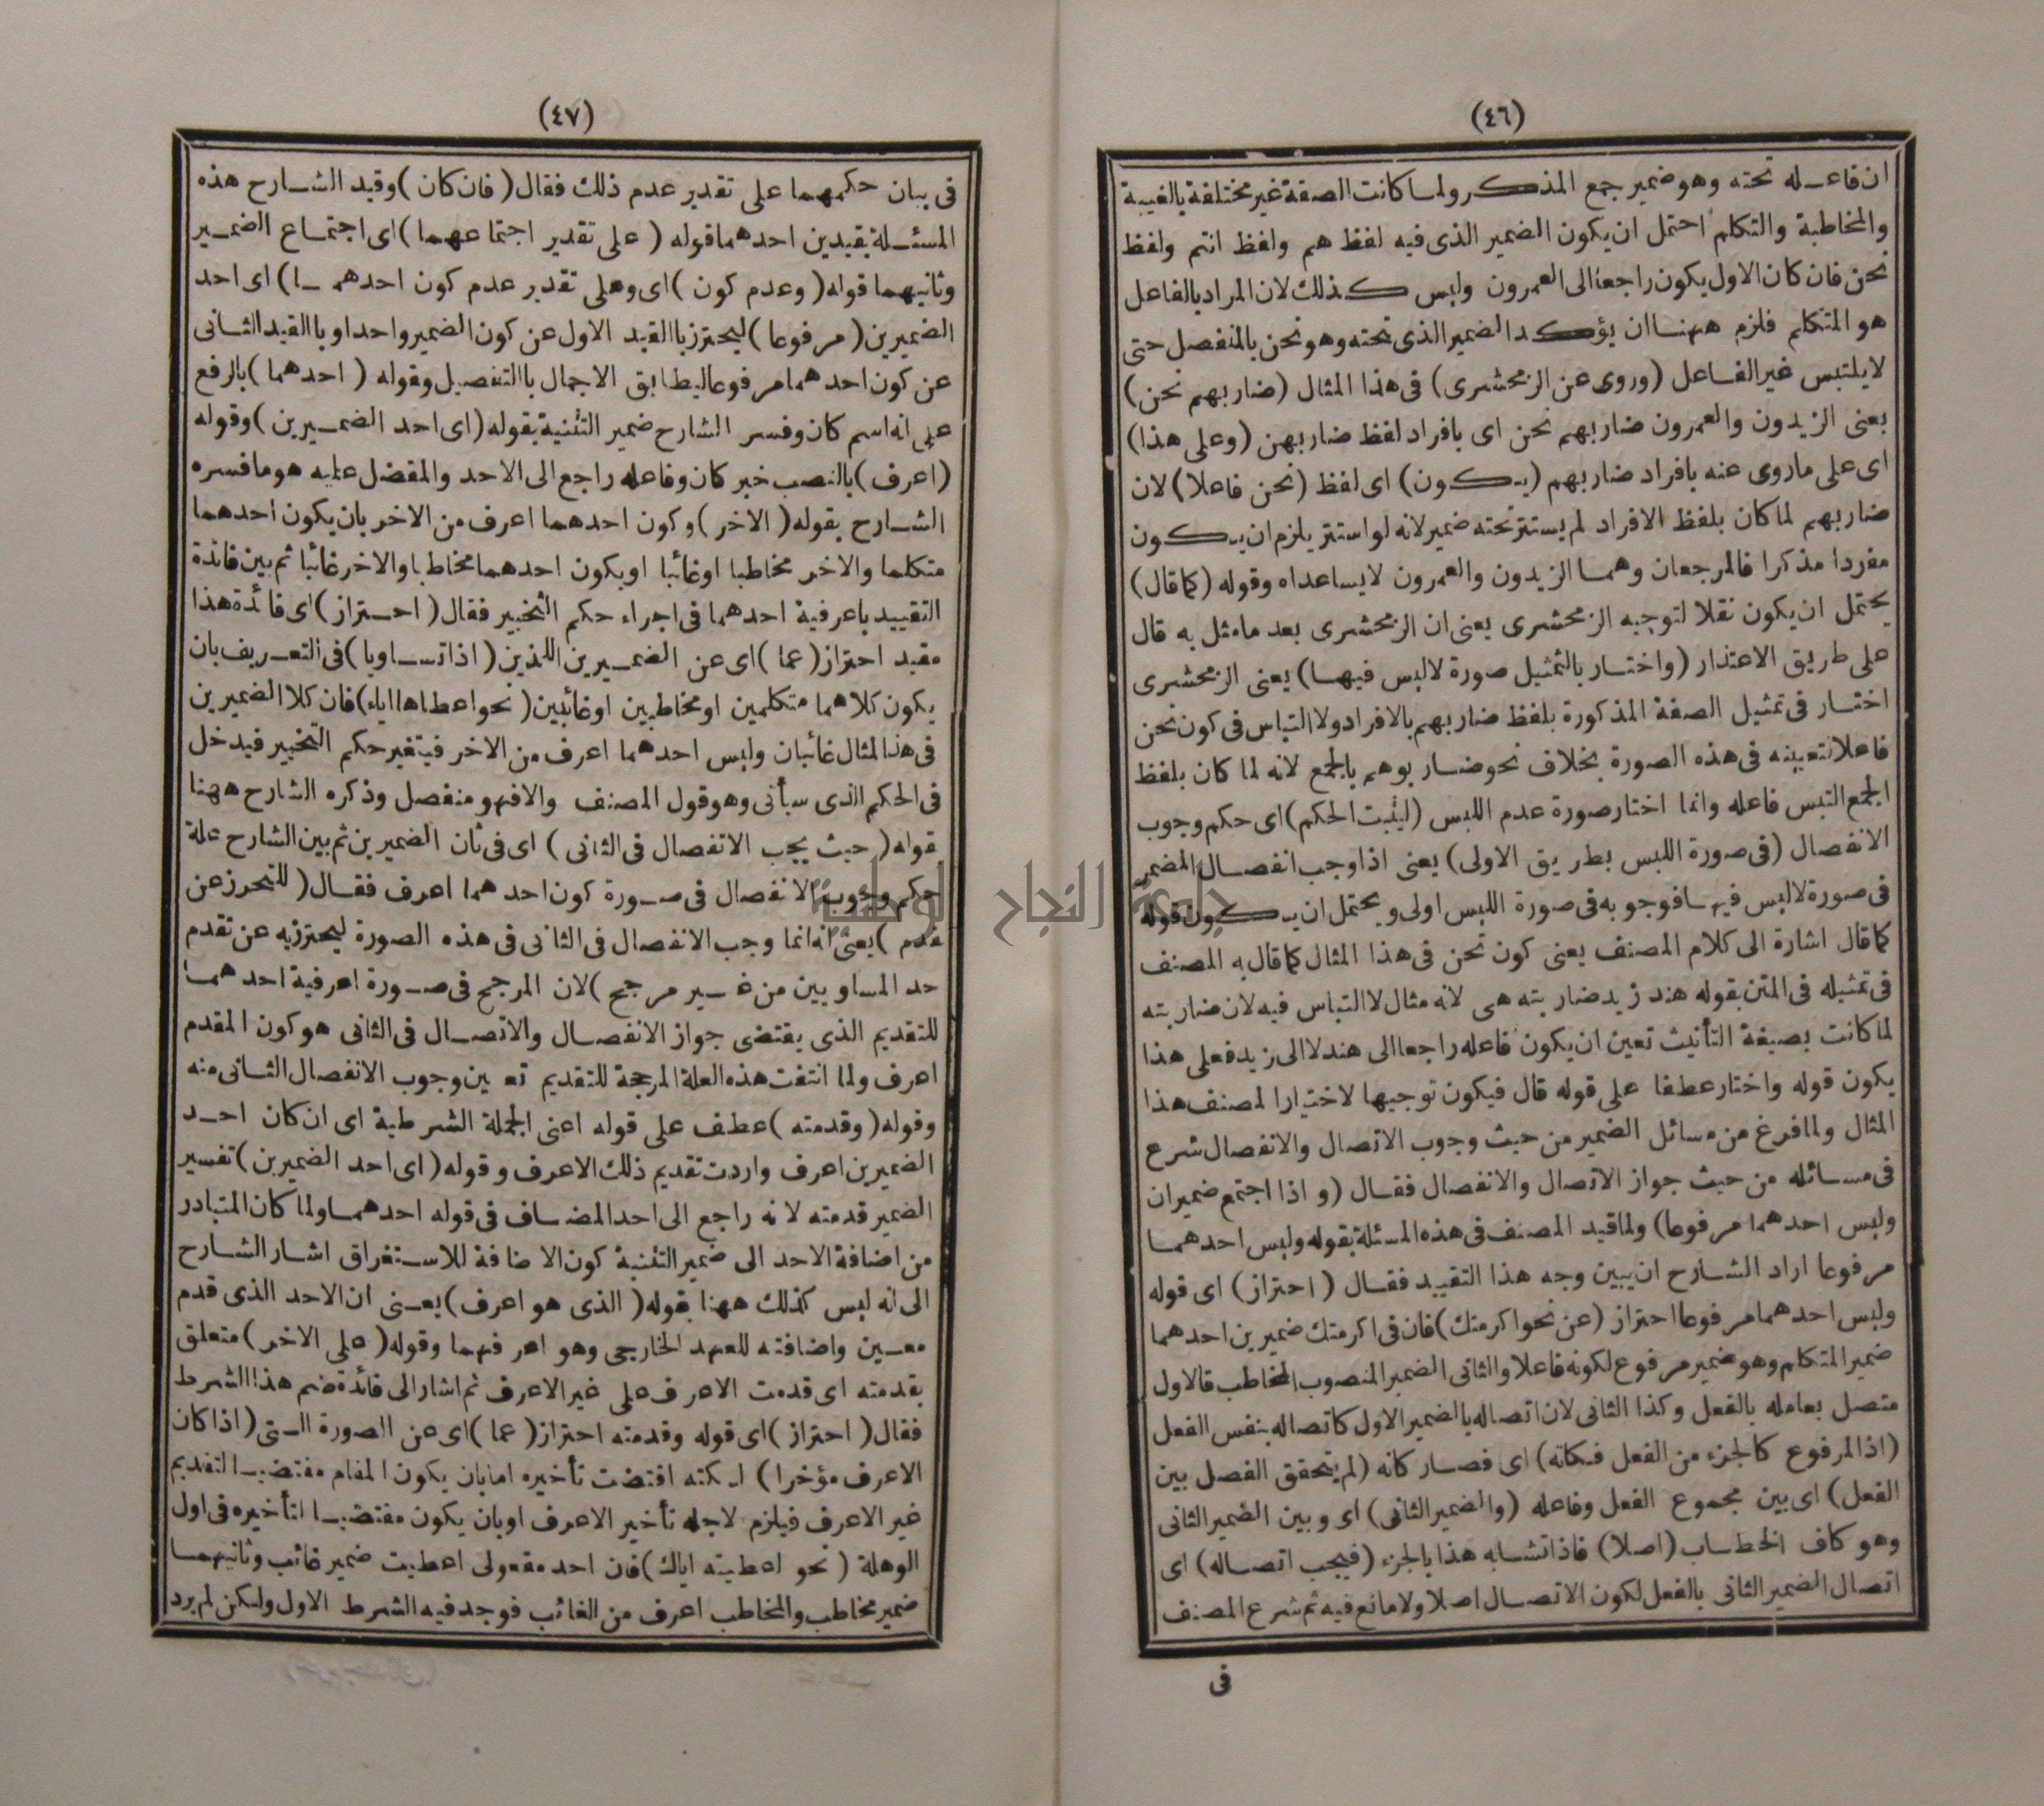 (٤٦)
ان فاعله تحته وهو ضمير جمع المذكر ولما كانت الصفة غير مختلفة بالغيبة
والمخاطبة والتكلم احتمل ان يكون الضمير الذى فيه لفظ هم ولفظ انتم ولفظ
نحن فان كان الاول يكون راجعا الى العمرون وليس كذلك لان المراد بالفاعل
هو المتكلم فلزم ههنا ان يؤكد الضمير الذى تحته وهو نحن بالمنفصل حتى
لا يلتبس غير الفاعل (وروى عن الزمخشرى) فى هذا المثال (ضاربهم نحن)
يعنى الزيدون والعمرون ضاربهم نحن اى بافراد لفظ ضاربهن (وعلى هذا)
اى على ماروى عنه بافراد ضاربهم (يكون) اى لفظ (نحن فاعلا) لان
ضاربهم لما كان بلفظ الافراد لم يستتر تحته ضمير لانه لو استتر يلزم ان يكون
مفردا مذكرا فالمرجعان وهما الزيدون والعمرون لا يساعداه وقوله (كما قال)
يحتمل ان يكون نقلا لتوجيه الزمخشرى يعنى ان الزمخشرى بعد مامثل به قال
على طريق الاعتذار (واختار بالتمثيل صورة لا لبس فيها) يعنى الزمخشرى
اختار فى تمثيل الصفة المذكورة بلفظ ضاربهم بالافراد ولا التباس فى كون نحن
فاعلا لتعينه فى هذه الصورة بخلاف نحو ضاربوهم بالجمع لانه لما كان بلفظ
الجمع التبس فاعله وانما اختار صورة عدم اللبس (ليثبت الحكم) اى حكم وجوب
الانفصال (فى صورة اللبس بطريق الاولى) يعنى اذا وجب انفصال المضمر
فى صورة لا لبس فيها فوجوبه فى صورة اللبس اولى ويحتمل ان يكون قوله
كما قال اشارة الى كلام المصنف يعنى كون نحن فى هذا المثال كما قال به المصنف
فى تمثيله فى المتن بقوله هند زيد ضاربته هى لانه مثال لا التباس فيه لان ضاربته
لما كانت بصيغة التأنيث تعين ان يكون فاعله راجعا الى هند لا الى زيد فعلى هذا
يكون قوله واختار عطفا على قوله قال فيكون توجيها لاختيار المصنف هذا
المثال ولما فرغ من مسائل الضمير من حيث وجوب الاتصال والانفصال شرع
فى مسائله من حيث جواز الاتصال والانفصال فقال (و اذا اجتمع ضميران
وليس احدهما مرفوعا) ولما قيد المصنف فى هذه المسئلة بقوله وليس احدهما
مرفوعا اراد الشارح ان يبين وجه هذا التقييد فقال (احتراز) اى قوله
وليس احدهما مرفوعا احتراز (عن نحو اكرمتك) فان فى اكرمتك ضميرين احدهما
ضمير المتكلم وهو ضمير مرفوع لكونه فاعلا والثانى الضمير المنصوب المخاطب فالاول
متصل بعامله بالفعل وكذا الثانى لان اتصاله بالضمير الاول كاتصاله بنفس الفعل
(اذ المرفوع كالجزء من الفعل فكانه) اى فصار كانه (لم يتحقق الفصل بين
الفعل) اى بين مجموع الفعل وفاعله (والضمير الثانى) اى وبين الضمير الثانى
وهو كاف الخطاب (اصلا) فاذا تشابه هذا بالجزء (فيجب اتصاله) اى
اتصال الضمير الثانى بالفعل لكون الاتصال اصلا ولا مانع فيه ثم شرع المصنف
فى
(٤٧)
فى بيان حكمهما على تقدير عدم ذلك فقال (فان كان) وقيد الشارح هذه
المسئلة بقيدين احدهما قوله (على تقدير اجتماعهما) اى اجتماع الضمير
وثانيهما قوله (وعدم كون) اى وعلى تقدير عدم كون احدهما) اى احد
الضميرين (مرفوعا) ليحترز با القيد الاول عن كون الضمير واحدا وبا القيد الثانى
عن كون احدهما مرفوعا ليطابق الاجمال با التفصيل وقوله (احدهما) بالرفع
على انه اسم كان وفسر الشارح ضمير التثنية بقوله (اى احد الضميرين) وقوله
(اعرف) بالنصب خبر كان وفاعله راجع الى الاحد والمفضل عليه هو مافسره
الشارح بقوله (الاخر) وكون احدهما اعرف من الاخر بان يكون احدهما
متكلما والاخر مخاطبا او غائبا او يكون احدهما مخاطبا والاخر غائبا ثم بين فائدة
التقييد باعرفية احدهما فى اجراء حكم التخيير فقال (احتراز) اى فائدة هذا
مقيد احتراز (عما) اى عن الضميرين اللذين (اذا تساويا) فى التعريف بان
يكون كلاهما متكلمين او مخاطبين او غائبين (نحو اعطاها اياه) فان كلا الضميرين
فى هذا المثال غائبان وليس احدهما اعرف من الاخر فيتغير حكم التخيير فيدخل
فى الحكم الذى سيأتى وهو قول المصنف والا فهو منفصل وذكره الشارح ههنا
قوله (حيث يجب الانفصال فى الثانى) اى فى ثان الضميرين ثم بين الشارح علة
حكم وجوب الانفصال فى صورة كون احدهما اعرف فقال (للتحرز عن
تقدم) يعنى انه انما وجب الانفصال فى الثانى فى هذه الصورة ليحترز به عن تقدم
حد المساويين من غير مرجح) لان المرجح فى صورة اعرفية احدهما
للتقديم الذى يقتضى جواز الانفصال والاتصال فى الثانى هو كون المقدم
اعرف ولما انتفت هذه العلة المرجحة للتقديم تعين وجوب الانفصال الثانى منه
وقوله (وقدمته) عطف على قوله اعنى الجملة الشرطية اى ان كان احد
الضميرين اعرف واردت تقديم ذلك الاعرف وقوله (اى احد الضميرين) تفسير
الضمير قدمته لانه راجع الى احد المضاف فى قوله احدهما ولما كان المتبادر
من اضافة الاحد الى ضمير التثنية كون الاضافة للاستغراق اشار الشارح
الى انه ليس كذلك ههنا بقوله (الذى هو اعرف) يعنى ان الاحد الذى قدم
معين واضافته للعهد الخارجى وهو اعرفهما وقوله (على الاخر) متعلق
بقدمته اى قدمت الاعرف على غير الاعرف ثم اشار الى فائدة ضم هذا الشرط
فقال (احتراز) اى قوله وقدمته احتراز (عما) اى عن الصورة التى (اذا كان
الاعرف مؤخرا) لنكتة اقتضت تأخيره اما بان يكون المقام مقتضيا لتقديم
غير الاعرف فيلزم لاجله تأخير الاعرف او بان يكون مقتضيا لتأخيره فى اول
الوهلة (نحو اعطيته اياك) فان احد مفعولى اعطيت ضمير غائب وثانيهما
ضمير مخاطب والمخاطب اعرف من الغائب فوجد فيه الشرط الاول ولكن لم يرد
جامعة النجاح الوطنية